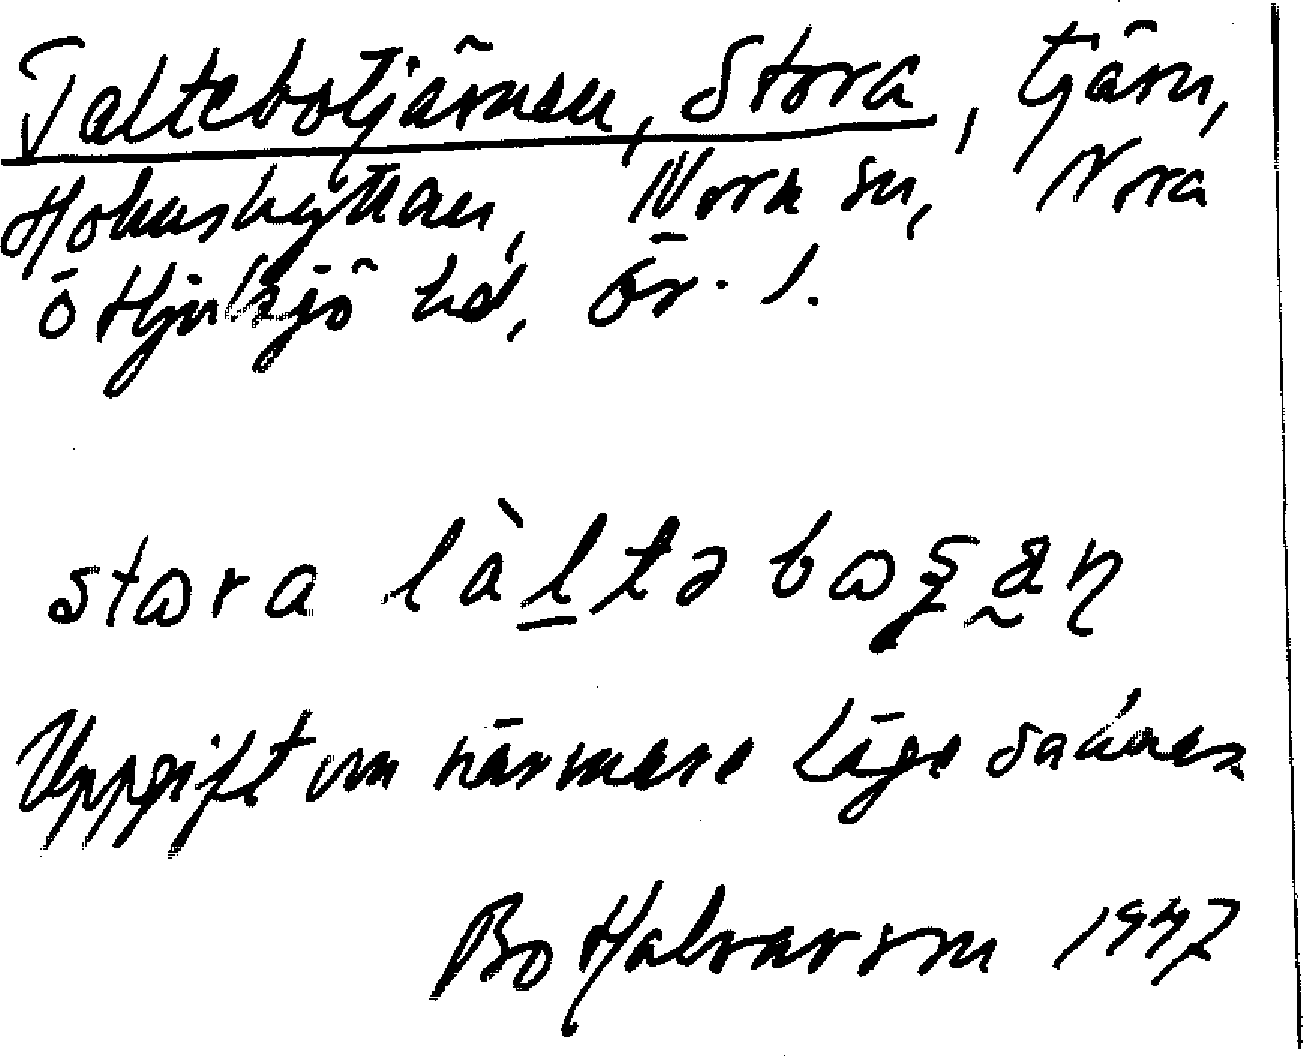 Taltebotjärnen, Stora, tjärn,
Hokushyttan, Nora sn, Nora
o Hjulsjö hd, Ör. l.
stora
Uppgift om närmare läge saknas
Bo Halvarson 1947